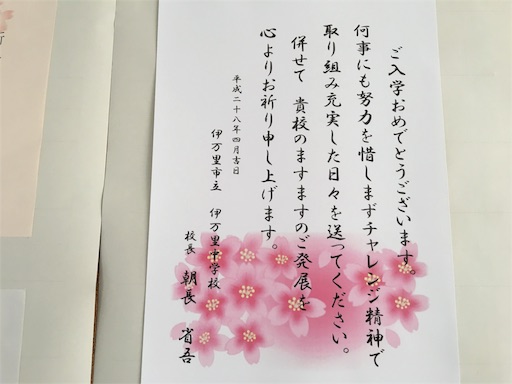 ご入学おめでとうございます。
何事にも努力を惜しまずチャレンジ精神で
取り組み充実した日々を送ってください。
併せて 貴校のますますのご発展を
心よりお祈り申し上げます。
平成二十八年四月吉日
伊万里市立 伊万里中学校
校長 朝長 省吾